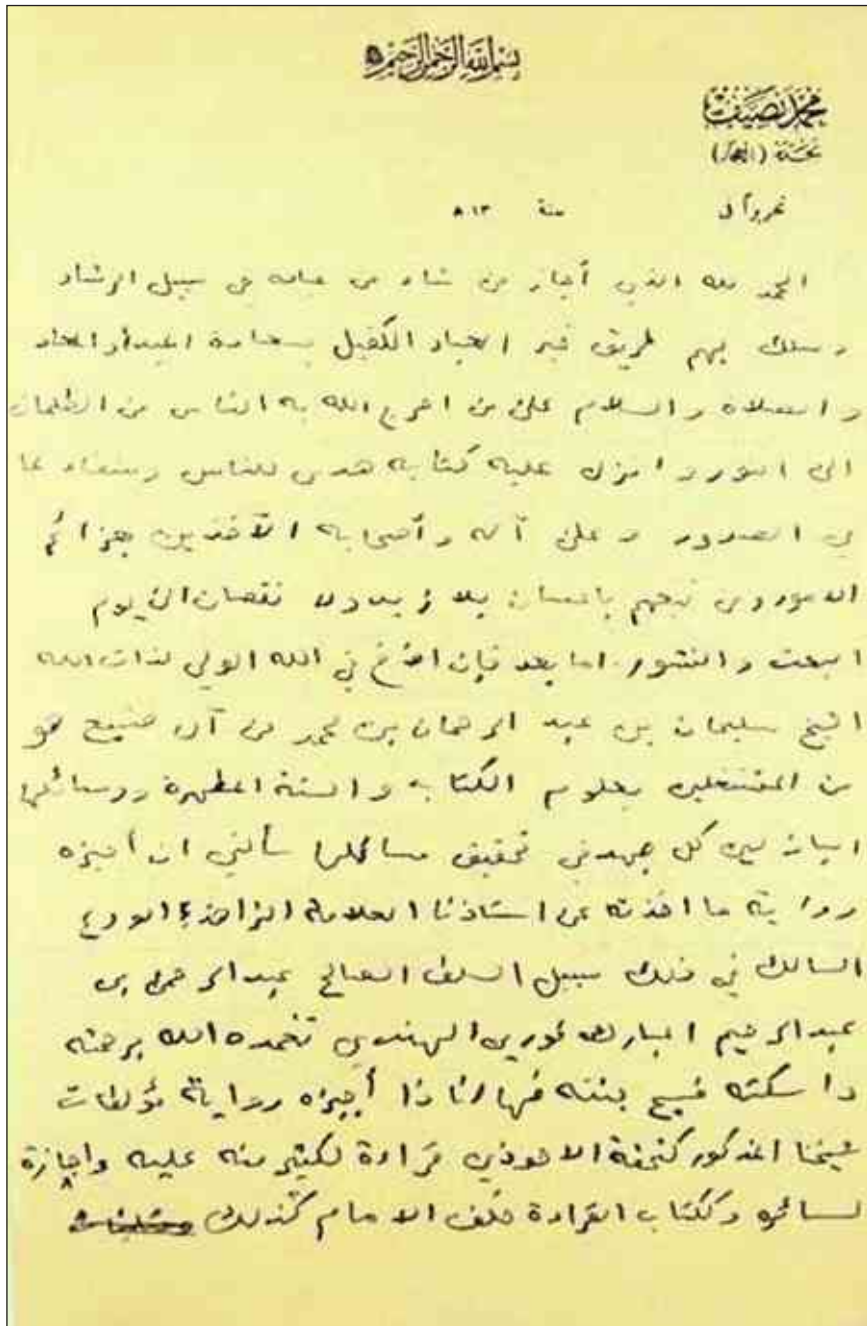 بسم الله الرحمن الرحيم
محمد نصيف
بجدة (الحجاز)
تحريراً في سنة ١٣ هـ
الحمد لله الذي أجاز من شاء من عباده في سبيل الرشاد
وسلك بهم طريق خير العباد الكفيل بسعادة المبدأ والمعاد
والصلاة والسلام على من اخرج الله به الناس من الظلمات
الى النور وانزل عليه كتابه هدى للناس وشفاء لما
في الصدور وعلى آله وأصحابه الآخذين بعزائم
الامور ومن تبعهم باحسان بلا زيد ولا نقصان الى يوم
البعث والنشور. اما بعد فإن الاخ في الله الولي لذات الله
الشيخ سليمان بن عبد الرحمان بن محمد من آل صنيع هو
من المشتغلين بعلوم الكتاب والسنة المطهرة ووسائلها
الباذلين كل جهد في تحقيق مسائلها سألني ان أجيزه
رواية ما اخذته عن استاذنا العلامة الزاهد الورع
السالك في ذلك سبيل السلف الصالح عبد الرحمن بن
عبد الرحيم المباركفوري الهندي تغمده الله برحمته
واسكنه فسيح جنته فها انا ذا أجيزه رواية مؤلفات
شيخنا المذكور كتحفة الاحوذي قراءة لكثير منه عليه واجازة
لسائره وككتاب القراءة خلف الامام كذلك